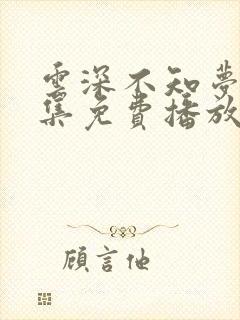 雲深不知夢
集免費播放
顧言他